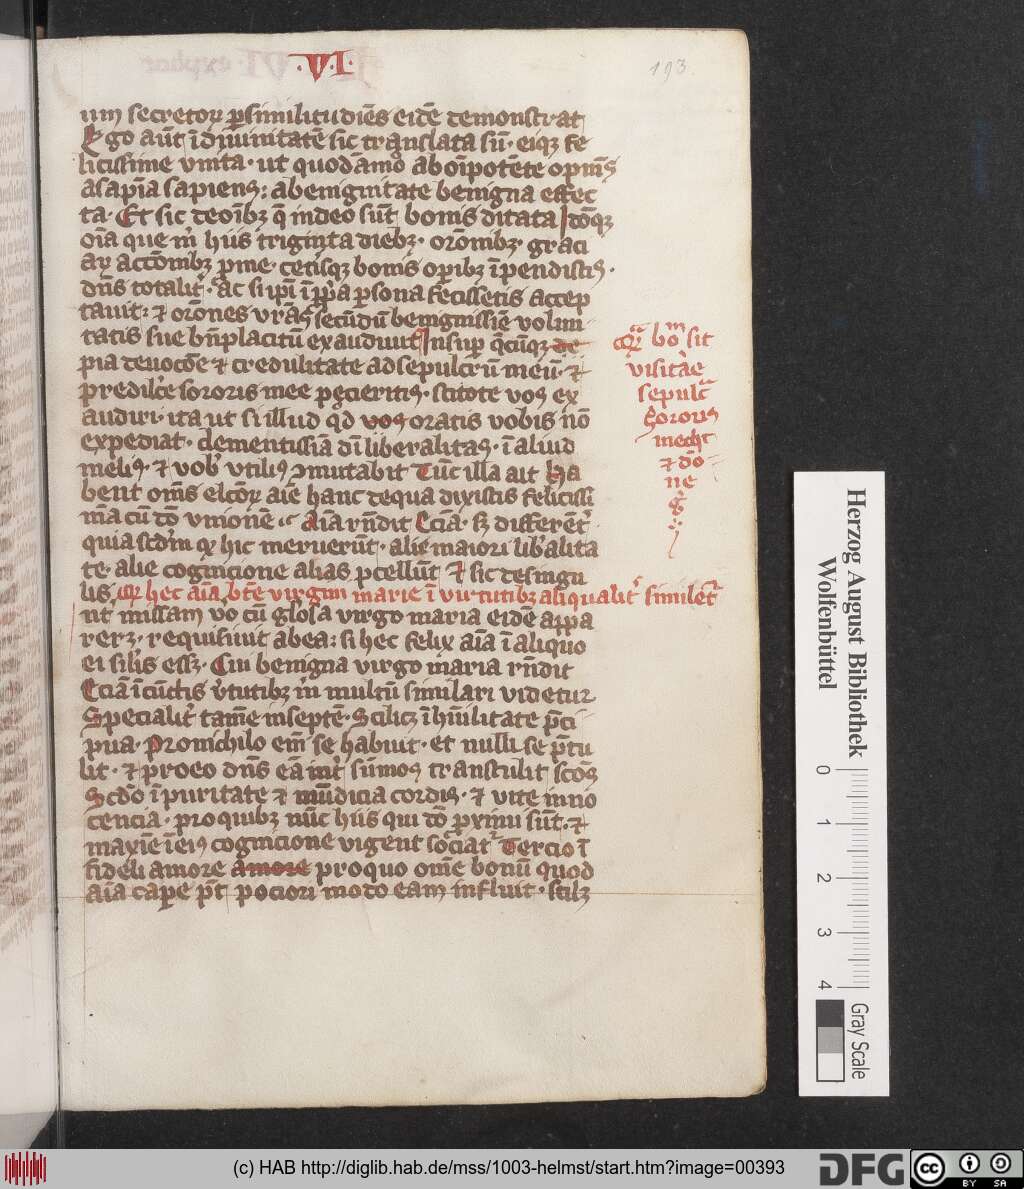 ·VI·
193.
um secretor̄ p̄similitudiēs eidē demonstrat
Ego aūt ī diuinitatē sic translata sū· eiqʒ fe
licissime vnita· ut quodāmo ab oīpotēte opn̄is
a sapīa sapiens: a benignitate benigna effec
ta· Et sic de oībʒ q̄ in deo sūt bonis ditata Idcōqʒ
oīa que in hiis triginta diebʒ· orōnibʒ· graci
aꝝ accōnibʒ p̄ me· cetisqʒ bonis op̄ibʒ īpendistis·
dn̄s totalit᷑· ac si ip̄i ī pp̄a p̄sona fecissetis accep
tauit: ⁊ orōnes vr̄as secūdū benignissiē volun
tatis sue bn̄placitū exaudiuit Insup̄ q̄cūqʒ de
pia deuocōe ⁊ credulitate ad sepulcrū meū· ⁊
predilc̄e sororis mee pecieritis· scitote vos ex
audiri· ita ut si illud qd vos oratis vobis nō
expediat· clementissiā dī liberalitas· ī aliud
meli⁹· ⁊ vob᷑ vtili⁹ ꝯmutabit Tūc illa ait Ha
bent om̄s elcōr̄ aīe hanc de qua dixistis felicissi
mā cū dō vnionē ⁊c Aīa rn̄dit Eciā· sʒ differēt᷑
quia scdm qʒ hic meruerūt· alie maiori lib᷑alita
te· alie cognicione alias p̄cellūt Et sic desingu
lis Qʒ hec aīa bt̄e virgini marie ī virtutibʒ aliqualit᷑ similet᷑
int᷑ missam vo cū gl'osa virgo maria eidē appa
rerʒ· requisiuit ab ea: si hec felix aīa ī aliquo
ei silīs essʒ· Cui benigna virgo maria rn̄dit
Eciā ī cūctis v᷑tutibʒ m̄ multū similari videtur
Specialit᷑ tam̄e in septē· Scilicʒ ī hūilitate p̄ci
pua· Pro nichilo em̄ se habuit· et nulli se p̄tu
lit· ⁊ pro eo dn̄s eā int᷑ sūmos transtulit scōs
Scdō ī puritate ⁊ mūdicia cordis· ⁊ vite inno
cencia· pro quibʒ nūc hiis qui dō p̄ximi sūt· ⁊
maxīe ī ei⁹ cognicione vigent sociat᷑ Tercio ī
fideli amore amore pro quo om̄e bonū quod
aīa cape p̄t pociori modo eam influit· Scilʒ
Qʒ bonū sit
visitāe
sepulc᷑
sororis
mecht
⁊ dō
ne
G᷑
Herzog August Bibliothek
Wolfenbüttel
0 1 2 3 4
Gray Scale
(c) HAB http://diglib.hab.de/mss/1003-helmst/start.htm?image=00393
DFG
cc BY SA